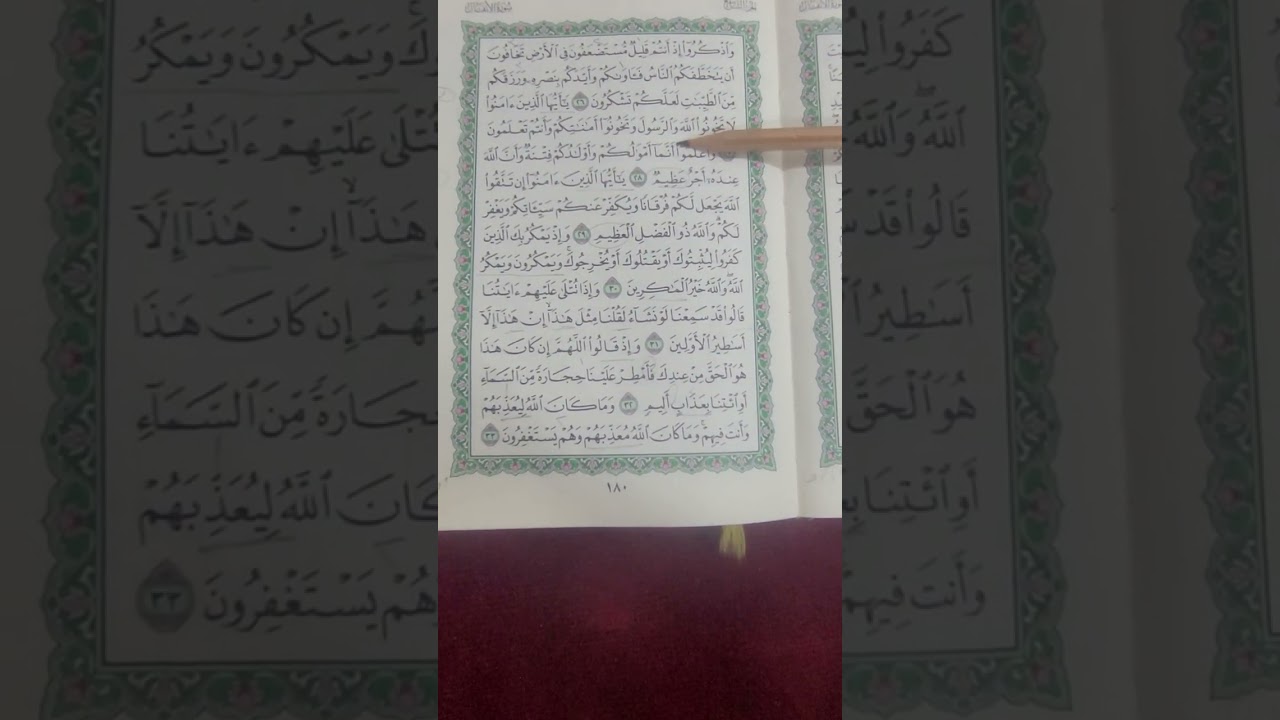 سُورَةُ الأَنفَالِ
وَاذْكُرُوا إِذْ أَنتُمْ قَلِيلٌ مُّسْتَضْعَفُونَ فِي الْأَرْضِ تَخَافُونَ
أَن يَتَخَطَّفَكُمُ النَّاسُ فَـَٔاوَىٰكُمْ وَأَيَّدَكُم بِنَصْرِهِۦ وَرَزَقَكُم
مِّنَ الطَّيِّبَـٰتِ لَعَلَّكُمْ تَشْكُرُونَ ٢٦ يَـٰٓأَيُّهَا الَّذِينَ ءَامَنُوا
لَا تَخُونُوا اللَّهَ وَالرَّسُولَ وَتَخُونُوٓا أَمَـٰنَـٰتِكُمْ وَأَنتُمْ تَعْلَمُونَ
وَاعْلَمُوٓا أَنَّمَآ أَمْوَٰلُكُمْ وَأَوْلَـٰدُكُمْ فِتْنَةٌ وَأَنَّ اللَّهَ
عِندَهُۥٓ أَجْرٌ عَظِيمٌ ٢٨ يَـٰٓأَيُّهَا الَّذِينَ ءَامَنُوٓا إِن تَتَّقُوا
اللَّهَ يَجْعَل لَّكُمْ فُرْقَانًا وَيُكَفِّرْ عَنكُمْ سَيِّـَٔاتِكُمْ وَيَغْفِرْ
لَكُمْ وَاللَّهُ ذُو الْفَضْلِ الْعَظِيمِ ٢٩ وَإِذْ يَمْكُرُ بِكَ الَّذِينَ
كَفَرُوا لِيُثْبِتُوكَ أَوْ يَقْتُلُوكَ أَوْ يُخْرِجُوكَ وَيَمْكُرُونَ وَيَمْكُرُ
اللَّهُ وَاللَّهُ خَيْرُ الْمَـٰكِرِينَ ٣٠ وَإِذَا تُتْلَىٰ عَلَيْهِمْ ءَايَـٰتُنَا
قَالُوا قَدْ سَمِعْنَا لَوْ نَشَآءُ لَقُلْنَا مِثْلَ هَـٰذَآ إِنْ هَـٰذَآ إِلَّآ
أَسَـٰطِيرُ الْأَوَّلِينَ ٣١ وَإِذْ قَالُوا اللَّهُمَّ إِن كَانَ هَـٰذَا
هُوَ الْحَقَّ مِنْ عِندِكَ فَأَمْطِرْ عَلَيْنَا حِجَارَةً مِّنَ السَّمَآءِ
أَوِ ائْتِنَا بِعَذَابٍ أَلِيمٍ ٣٢ وَمَا كَانَ اللَّهُ لِيُعَذِّبَهُمْ
وَأَنتَ فِيهِمْ وَمَا كَانَ اللَّهُ مُعَذِّبَهُمْ وَهُمْ يَسْتَغْفِرُونَ ٣٣
١٨٠